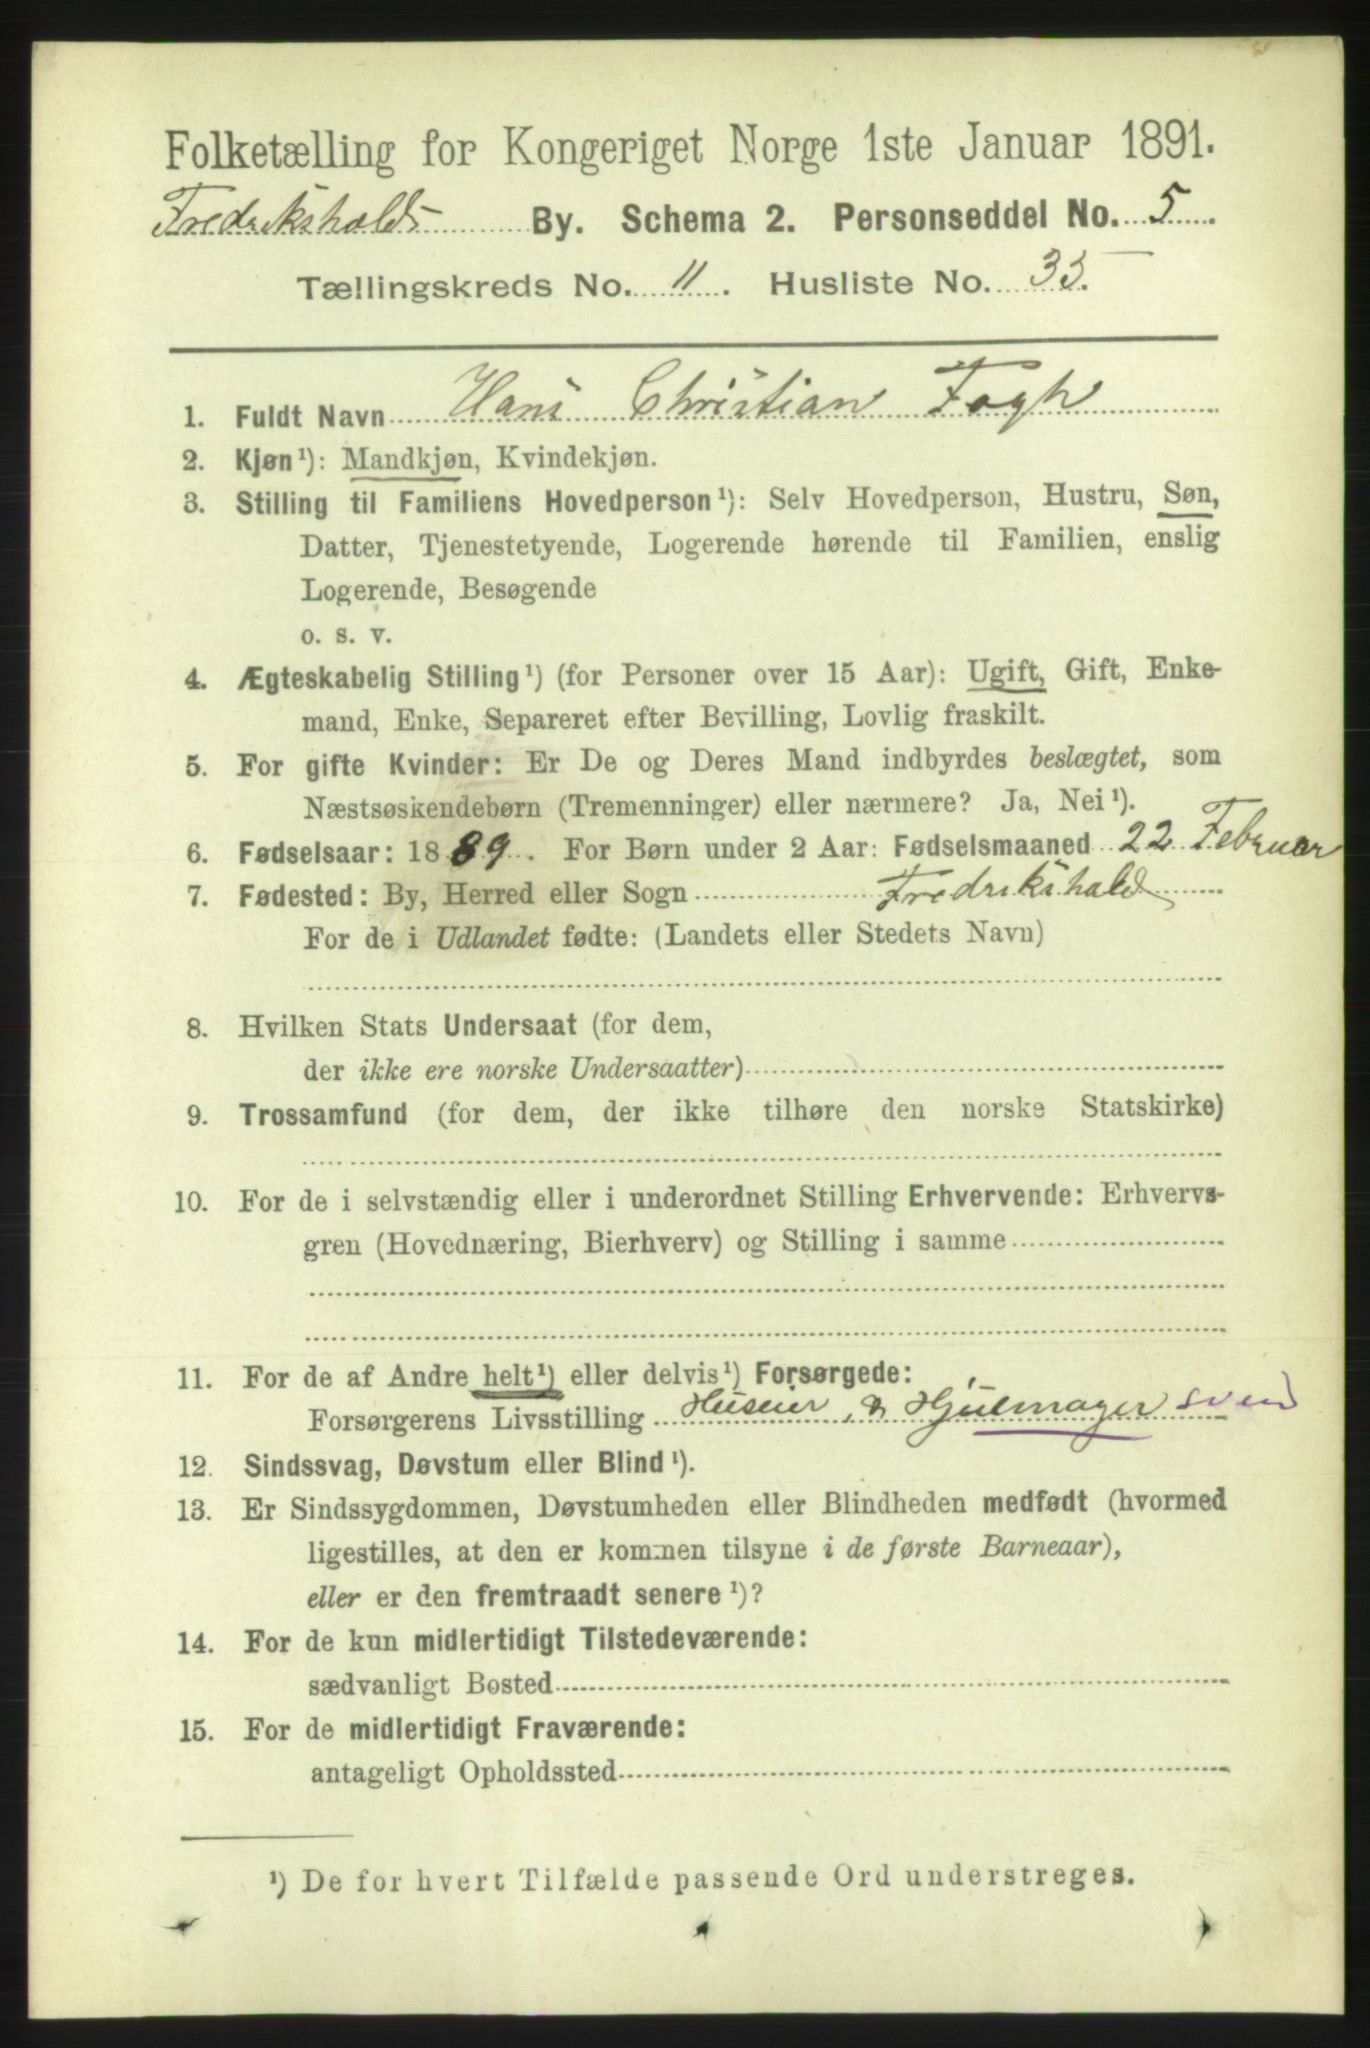 Folketælling for Kongeriget Norge 1ste Januar 1891.
Fredrikshalds By. Schema 2. Personseddel No. 5.
Tællingskreds No. 11. Husliste No. 35.
1. Fuldt Navn Hans Christian Fogh
2. Kjøn¹): Mandkjøn, Kvindekjøn.
3. Stilling til Familiens Hovedperson¹): Selv Hovedperson, Hustru, Søn,
Datter, Tjenestetyende, Logerende hørende til Familien, enslig
Logerende, Besøgende
o. s. v.
4. Ægteskabelig Stilling¹) (for Personer over 15 Aar): Ugift, Gift, Enke-
mand, Enke, Separeret efter Bevilling, Lovlig fraskilt.
5. For gifte Kvinder: Er De og Deres Mand indbyrdes beslægtet, som
Næstsøskendebørn (Tremenninger) eller nærmere? Ja, Nei¹).
6. Fødselsaar: 1889. For Børn under 2 Aar: Fødselsmaaned 22 Februar
7. Fødested: By, Herred eller Sogn Fredrikshald
For de i Udlandet fødte: (Landets eller Stedets Navn)
8. Hvilken Stats Undersaat (for dem,
der ikke ere norske Undersaatter)
9. Trossamfund (for dem, der ikke tilhøre den norske Statskirke)
10. For de i selvstændig eller i underordnet Stilling Erhvervende: Erhvervs-
gren (Hovednæring, Bierhverv) og Stilling i samme
11. For de af Andre helt¹) eller delvis¹) Forsørgede:
Forsørgerens Livsstilling Huseier, & Hjulmager svend
12. Sindssvag, Døvstum eller Blind¹).
13. Er Sindssygdommen, Døvstumheden eller Blindheden medfødt (hvormed
ligestilles, at den er kommen tilsyne i de første Barneaar),
eller er den fremtraadt senere¹)?
14. For de kun midlertidigt Tilstedeværende:
sædvanligt Bosted
15. For de midlertidigt Fraværende:
antageligt Opholdssted
¹) De for hvert Tilfælde passende Ord understreges.